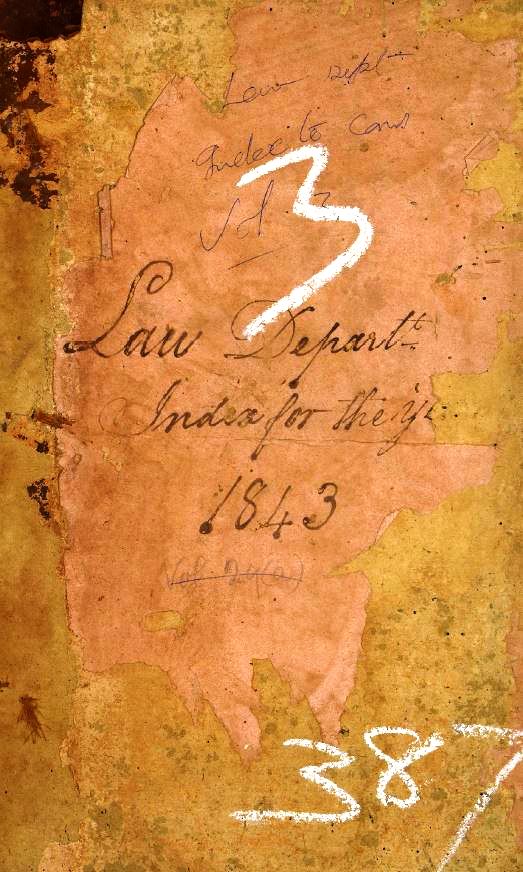 Law Dept
Index to Cons
Vol 3
3
Law Depart.t
Index for the ye
1843
Vol. 24(a)
387